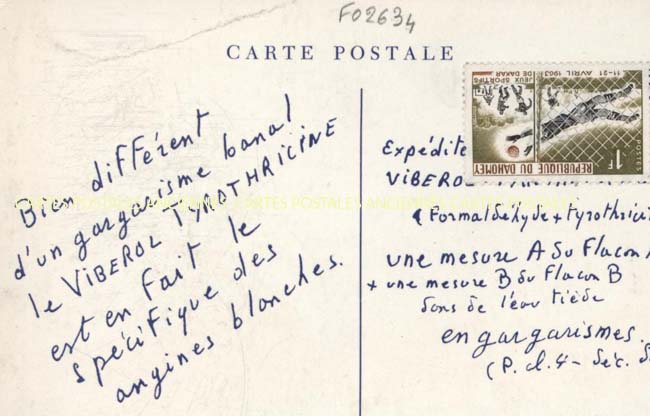 F02634
CARTE POSTALE
Bien différent
d'un gargarisme banal
le VIBEROL TYROTHRICINE
est en fait le
spécifique des
angines blanches.
JEUX SPORTIFS
DE DAKAR
11-21 AVRIL 1963
POSTES
1F
REPUBLIQUE DU DAHOMEY
Expédite
VIBEROL
(Formaldehyde + tyrothrici
une mesure A du Flacon A
+ une mesure B du Flacon B
dans de l'eau tiède
en gargarismes.
(P.cl.4 - Séc. S
CARTES POSTALES ANCIENNES CARTES POSTALES ANCIENNES CARTES POSTALES